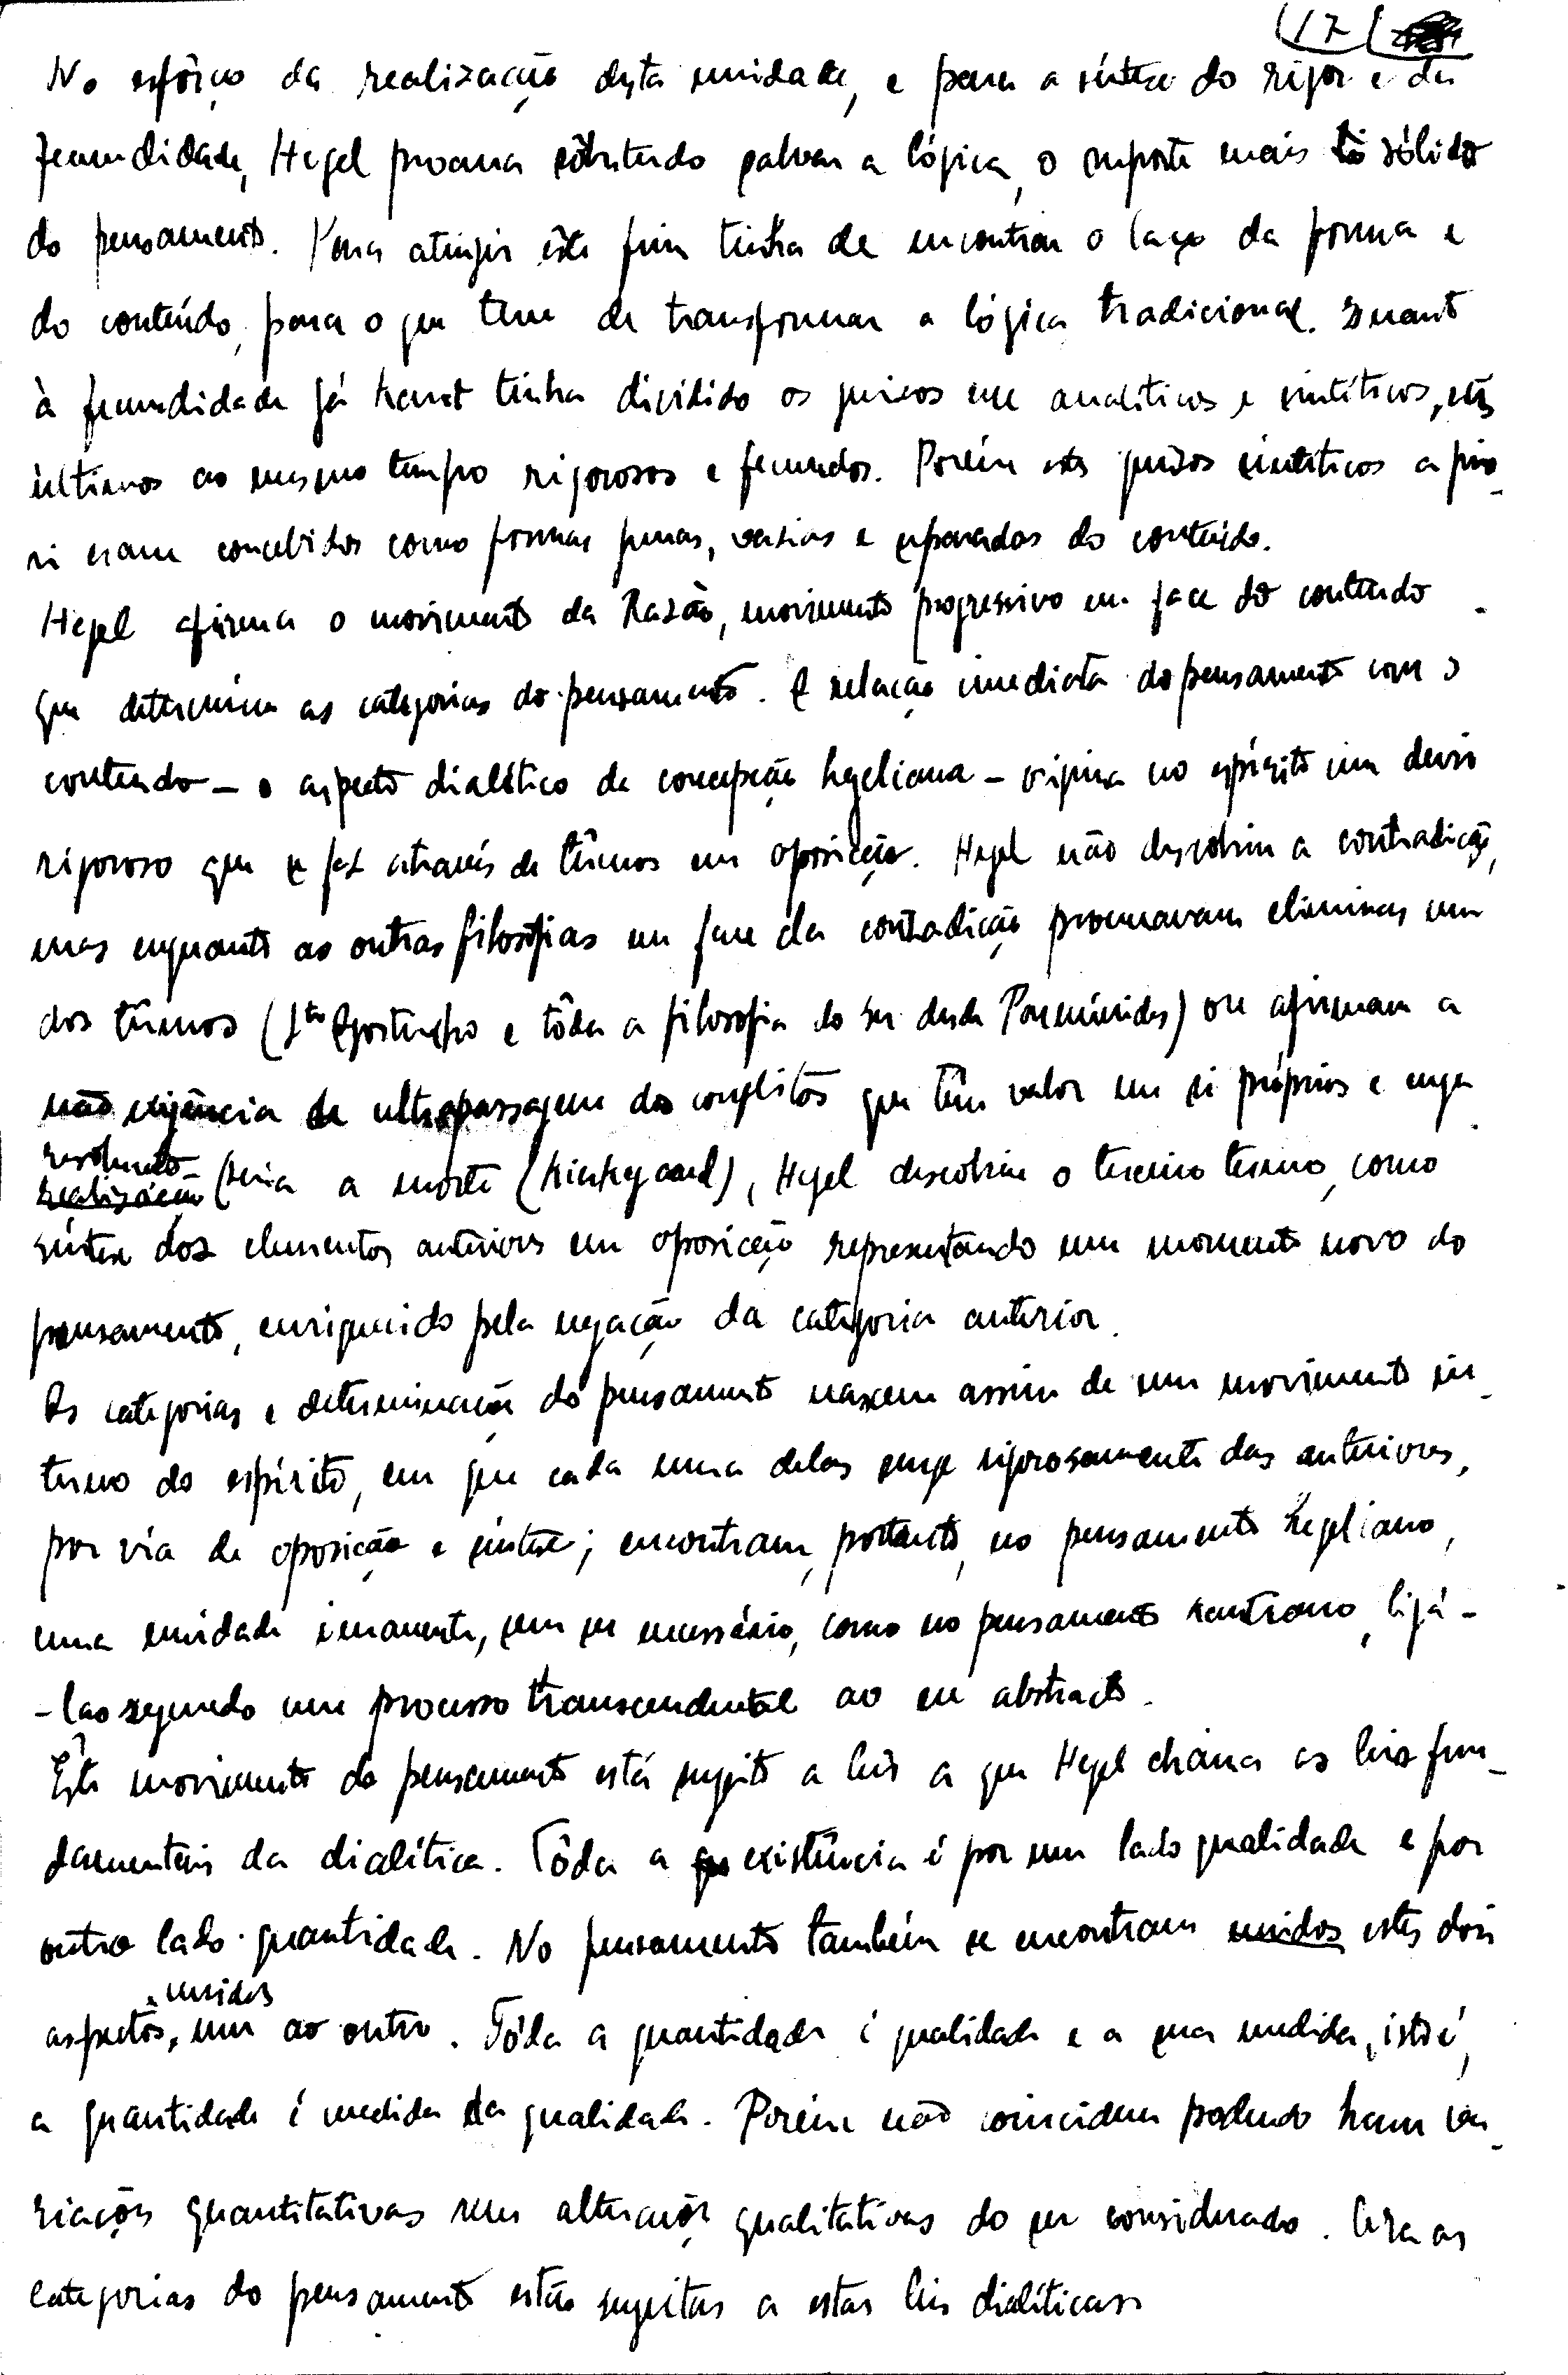 17
No esfôrço da realização desta unidade, e para a síntese do rigor e da
fecundidade, Hegel procura sobretudo salvar a lógica, o suporte mais sólido
do pensamento. Para atingir êste fim tinha de encontrar o laço da forma e
do conteúdo, para o que teve de transformar a lógica tradicional. Quanto
à fecundidade já Kant tinha dividido os juizos em analíticos e sintéticos, êstes
últimos ao mesmo tempo rigorosos e fecundos. Porém estes juizos sintéticos a prio-
ri eram concebidos como formas puras, vazias e separadas do conteúdo.
Hegel afirma o movimento da Razão, movimento progressivo em face do conteúdo
que determina as categorias do pensamento. A relação imediata do pensamento com o
conteúdo - o aspecto dialético da concepção hegeliana - origina no espírito um devir
rigoroso que se faz através de têrmos em oposição. Hegel não descobriu a contradição,
mas enquanto as outras filosofias em face da contradição procuravam eliminar um
dos têrmos (Sto Agostinho e tôda a filosofia do ser desde Parménides) ou afirmam a
não exigência de ultrapassagem dos conflitos que têm valor em si próprios e cuja
resolução
realização seria a morte (Kierkegaard), Hegel descobriu o terceiro termo, como
síntese dos elementos anteriores em oposição representando um momento novo do
pensamento, enriquecido pela negação da categoria anterior.
As categorias e determinações do pensamento nascem assim de um movimento in-
terno do espírito, em que cada uma delas surge rigorosamente das anteriores,
por via de oposição e síntese; encontram, portanto, no pensamento hegeliano,
uma unidade imanente, sem ser necessário, como no pensamento kantiano, ligá-
-las segundo um processo transcendental ao eu abstracto.
Êste movimento do pensamento está sugeito a leis a que Hegel chama as leis fun-
damentais da dialética. Tôda a existência é por um lado qualidade e por
outro lado quantidade. No pensamento também se encontram unidos estes dois
unidos
aspectos, um ao outro. Tôda a quantidade é qualidade e a sua medida, isto é,
a quantidade é medida da qualidade. Porém não coincidem podendo haver va-
riações quantitativas sem alterações qualitativas do ser considerado. Ora as
categorias do pensamento estão sugeitas a estas leis dialéticas.